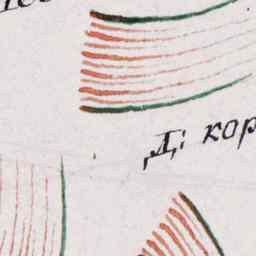 Д: кор